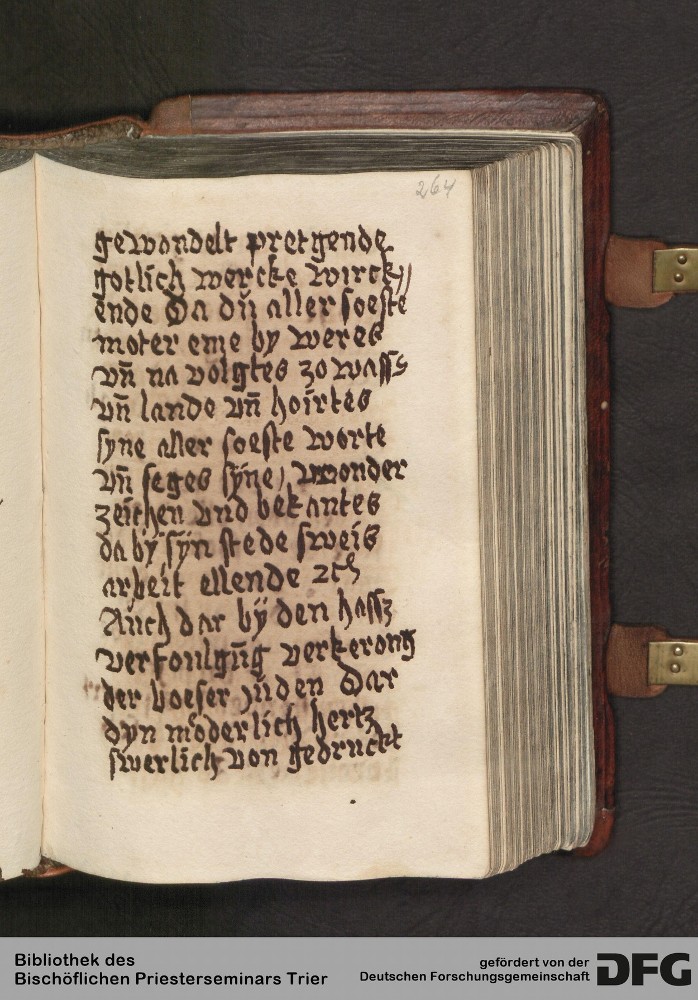 264
gewondelt pretgende
gotlich wercke wirck//
ende Da dü aller soeste
moter eme by weres
vn̄ na volgtes zo wass
vn̄ lande vn̄ hoirtes
syne aller soeste worte
vn̄ seges sÿne, wonder
zeichen vnd bekantes
da bÿ sÿn stede sweis
arbeit ellende ꝛcꝭ
Auch dar bÿ den hassz
verfoulgūg verkerong
der boeser jüden Dar
dyn moͤderlich hertz
swerlich von gedruckt
Bibliothek des
Bischöflichen Priesterseminars Trier
gefördert von der
Deutschen Forschungsgemeinschaft
DFG